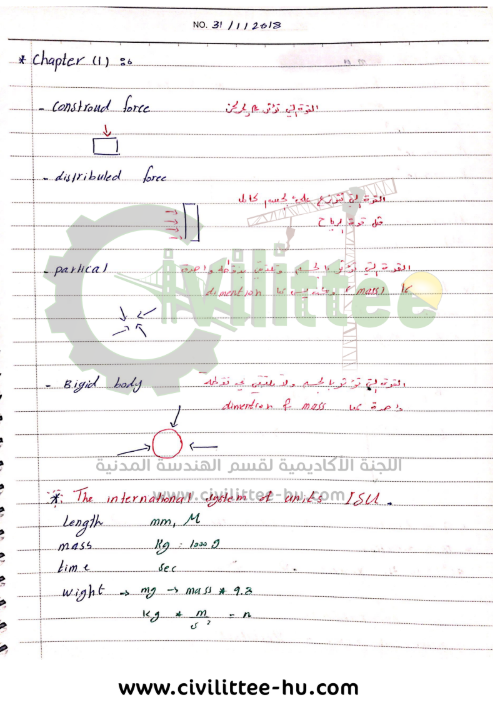 NO. 31 / 1 / 2018
* Chapter (1) :
- Constroud force القوة التي تؤثر
- distributed force
القوة التي تتوزع على الجسم كامل
مثل قوة الرياح
- partical القوة التي تؤثر بالجسم واحدة
mass) dimention
- Bigid body القوة التي تؤثر بالجسم ولا تلتقي في نقطة
واحدة لها dimention & mass
civilittee
اللجنة الأكاديمية لقسم الهندسة المدنية
www.civilittee-hu.com
* The international system of units ISU.
Length mm, M
mass Kg : 1000 g
time sec
wight → mg → mass * 9.8
Kg * m/s² = n
www.civilittee-hu.com